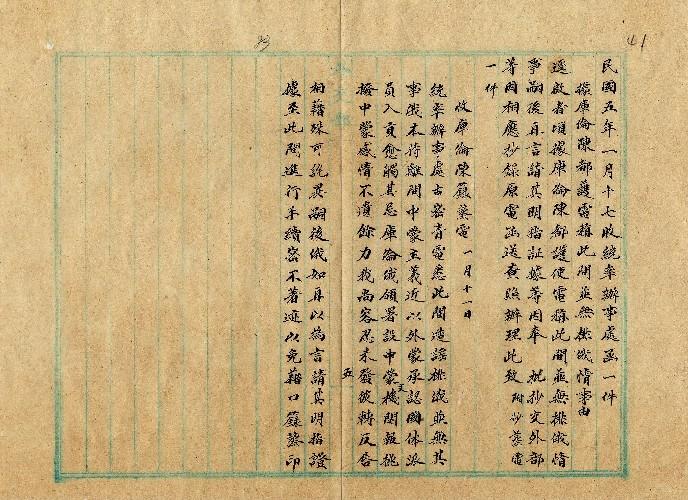 41
民國五年一月十七收統率辦事處函一件
據庫倫陳都護電稱此間並無挑俄情事由
逕啟者頃據庫倫陳都護使電稱此間並無排俄情
事嗣後再言請其明指証據等因奉 批抄交外部
等因相應抄錄原電函送查照辦理此致 附抄蒸電
一件
收庫倫陳籙蒸電 一月十一日
統率辦事處古密青電悉此間造謠排俄並無其
事俄本持離間中蒙主義近以外蒙承認國体派
員入貢愈觸其忌庫倫俄領署設中蒙文機關報挑
撥中蒙感情不遺餘力我尚容忍未發彼轉反唇
相藉殊可詫異嗣後俄如再以為言請其明指證
據至此間進行手續密不著迹以免藉口籙蒸印
五